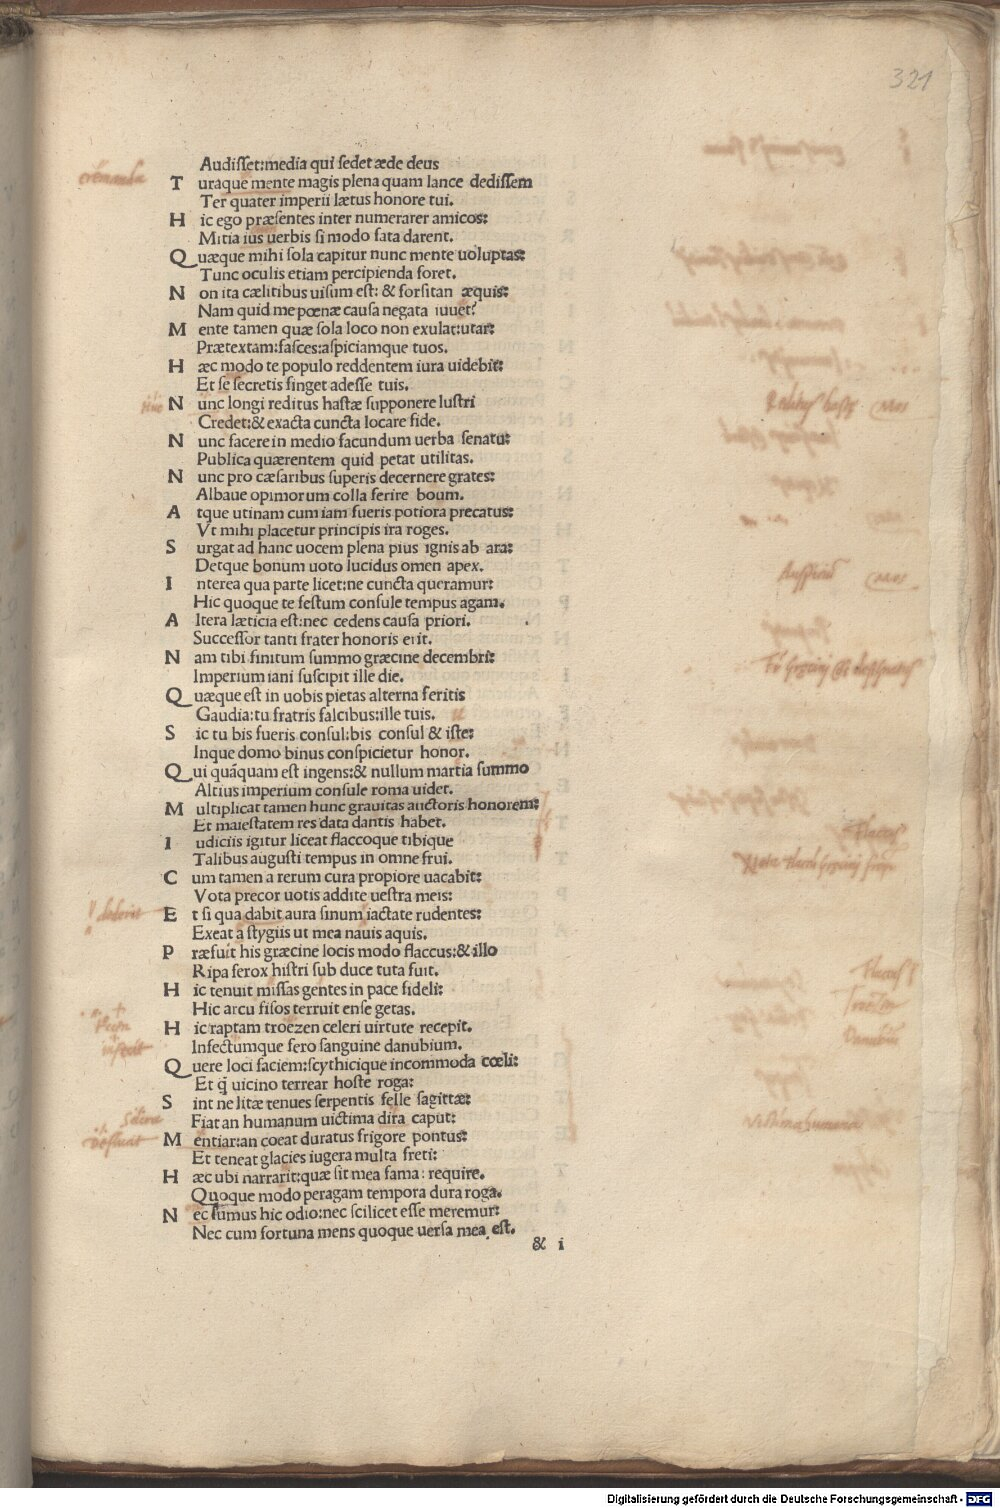 321
Audisset:media qui sedet æde deus
cremanda
T uraque mente magis plena quam lance dedissem
Ter quater imperii lætus honore tui.
H ic ego præsentes inter numerarer amicos:
Mitia ius uerbis si modo fata darent.
Q uæque mihi sola capitur nunc mente uoluptas:
Tunc oculis etiam percipienda foret.
N on ita cælitibus uisum est: & forsitan æquis:
Nam quid me pœnæ causa negata iuuet?
M ente tamen quæ sola loco non exulat:utar:
Prætextam:fasces:aspiciamque tuos.
H æc modo te populo reddentem iura uidebit:
Et se secretis finget adesse tuis.
N unc longi reditus hastæ supponere lustri
Credet:& exacta cuncta locare fide.
N unc facere in medio facundum uerba senatu:
Publica quærentem quid petat utilitas.
N unc pro cæsaribus superis decernere grates:
Albaue opimorum colla ferire boum.
A tque utinam cum iam fueris potiora precatus:
Vt mihi placetur principis ira roges.
S urgat ad hanc uocem plena pius ignis ab ara:
Detque bonum uoto lucidus omen apex.
I nterea qua parte licet:ne cuncta queramur:
Hic quoque te festum consule tempus agam.
A ltera læticia est:nec cedens causa priori.
Successor tanti frater honoris erit.
N am tibi finitum summo græcine decembri:
Imperium iani suscipit ille die.
Q uæque est in uobis pietas alterna feritis
Gaudia:tu fratris falcibus:ille tuis.
S ic tu bis fueris consul:bis consul & iste:
Inque domo binus conspicietur honor.
Q ui quãquam est ingens:& nullum martia summo
Altius imperium consule roma uidet.
M ultiplicat tamen hunc grauitas auctoris honorem:
Et maiestatem res data dantis habet.
I udiciis igitur liceat flaccoque tibique
Talibus augusti tempus in omne frui.
C um tamen a rerum cura propiore uacabit:
Vota precor uotis addite uestra meis:
dederit
E t si qua dabit aura sinum iactate rudentes:
Exeat a stygiis ut mea nauis aquis.
P ræfuit his græcine locis modo flaccus:& illo
Flaccus
Ripa ferox histri sub duce tuta fuit.
H ic tenuit missas gentes in pace fideli:
Hic arcu fisos terruit ense getas.
H ic raptam troezen celeri uirtute recepit.
Infectumque fero sanguine danubium.
Q uere loci faciem:scythicique incommoda cœli:
Et q̃ uicino terrear hoste roga:
S int ne litæ tenues serpentis felle sagittæ:
Fiat an humanum uictima dira caput:
M entiar:an coeat duratus frigore pontus:
Et teneat glacies iugera multa freti:
H æc ubi narrarit:quæ sit mea fama: require.
Quoque modo peragam tempora dura roga.
N ec sumus hic odio:nec scilicet esse meremur:
Nec cum fortuna mens quoque uersa mea est.
& i
Digitalisierung gefördert durch die Deutsche Forschungsgemeinschaft - DFG